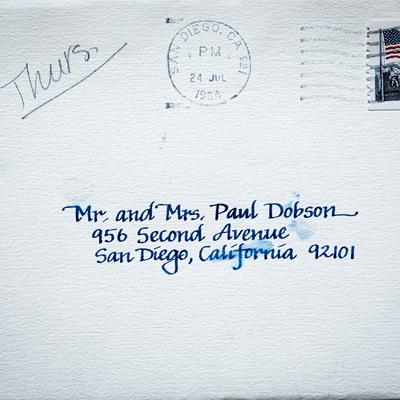 Thurs.
SAN DIEGO, CA 921
PM
24 JUL
Mr. and Mrs. Paul Dobson
956 Second Avenue
San Diego, California 92101